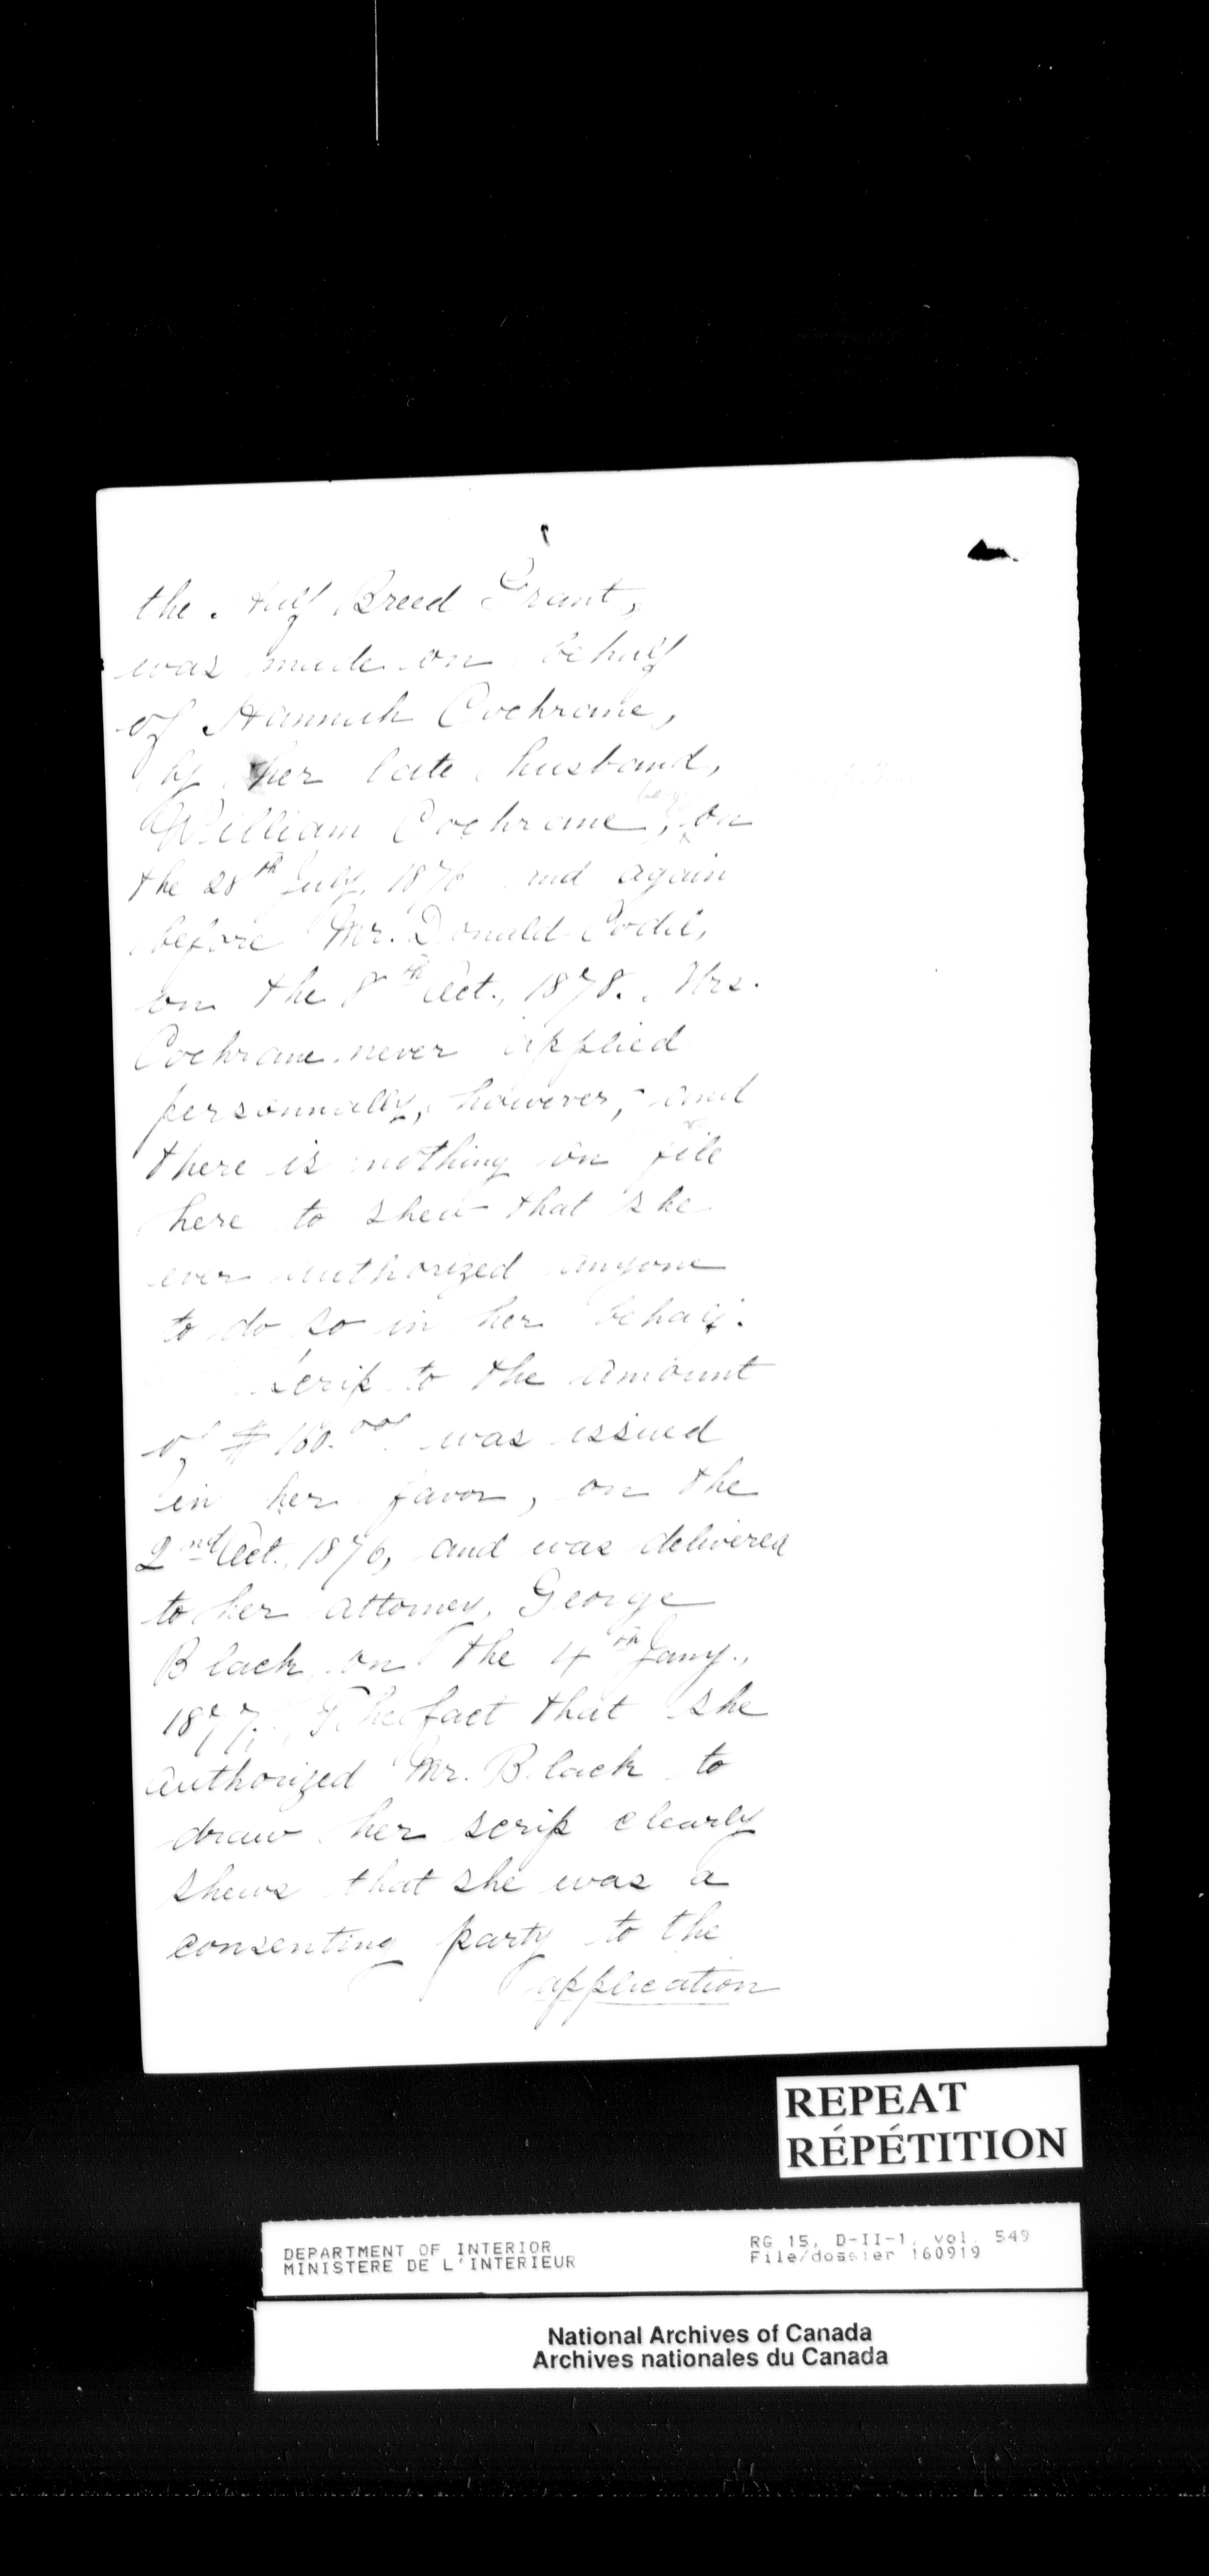 the Half Breed Grant,
was made on behalf
of Hannah Cochrane,
by her late husband,
William Cochrane, on
the 28th July, 1876 and again
before Mr. Donald Codd,
on the 8th Oct., 1878. Mrs.
Cochrane never applied
personnally, however, and
there is nothing on file
here to shew that she
ever authorized anyone
to do so in her behalf.
Scrip to the amount
of $160.00 was issued
in her favor, on the
2nd Oct., 1876, and was delivered
to her attorney, George
Black, on the 4th Jany.,
1877. The fact that she
authorized Mr. Black to
draw her scrip clearly
shews that she was a
consenting party to the
application
REPEAT
RÉPÉTITION
DEPARTMENT OF INTERIOR
MINISTERE DE L'INTERIEUR
RG 15, D-II-1, vol. 549
File/dossier 160919
National Archives of Canada
Archives nationales du Canada